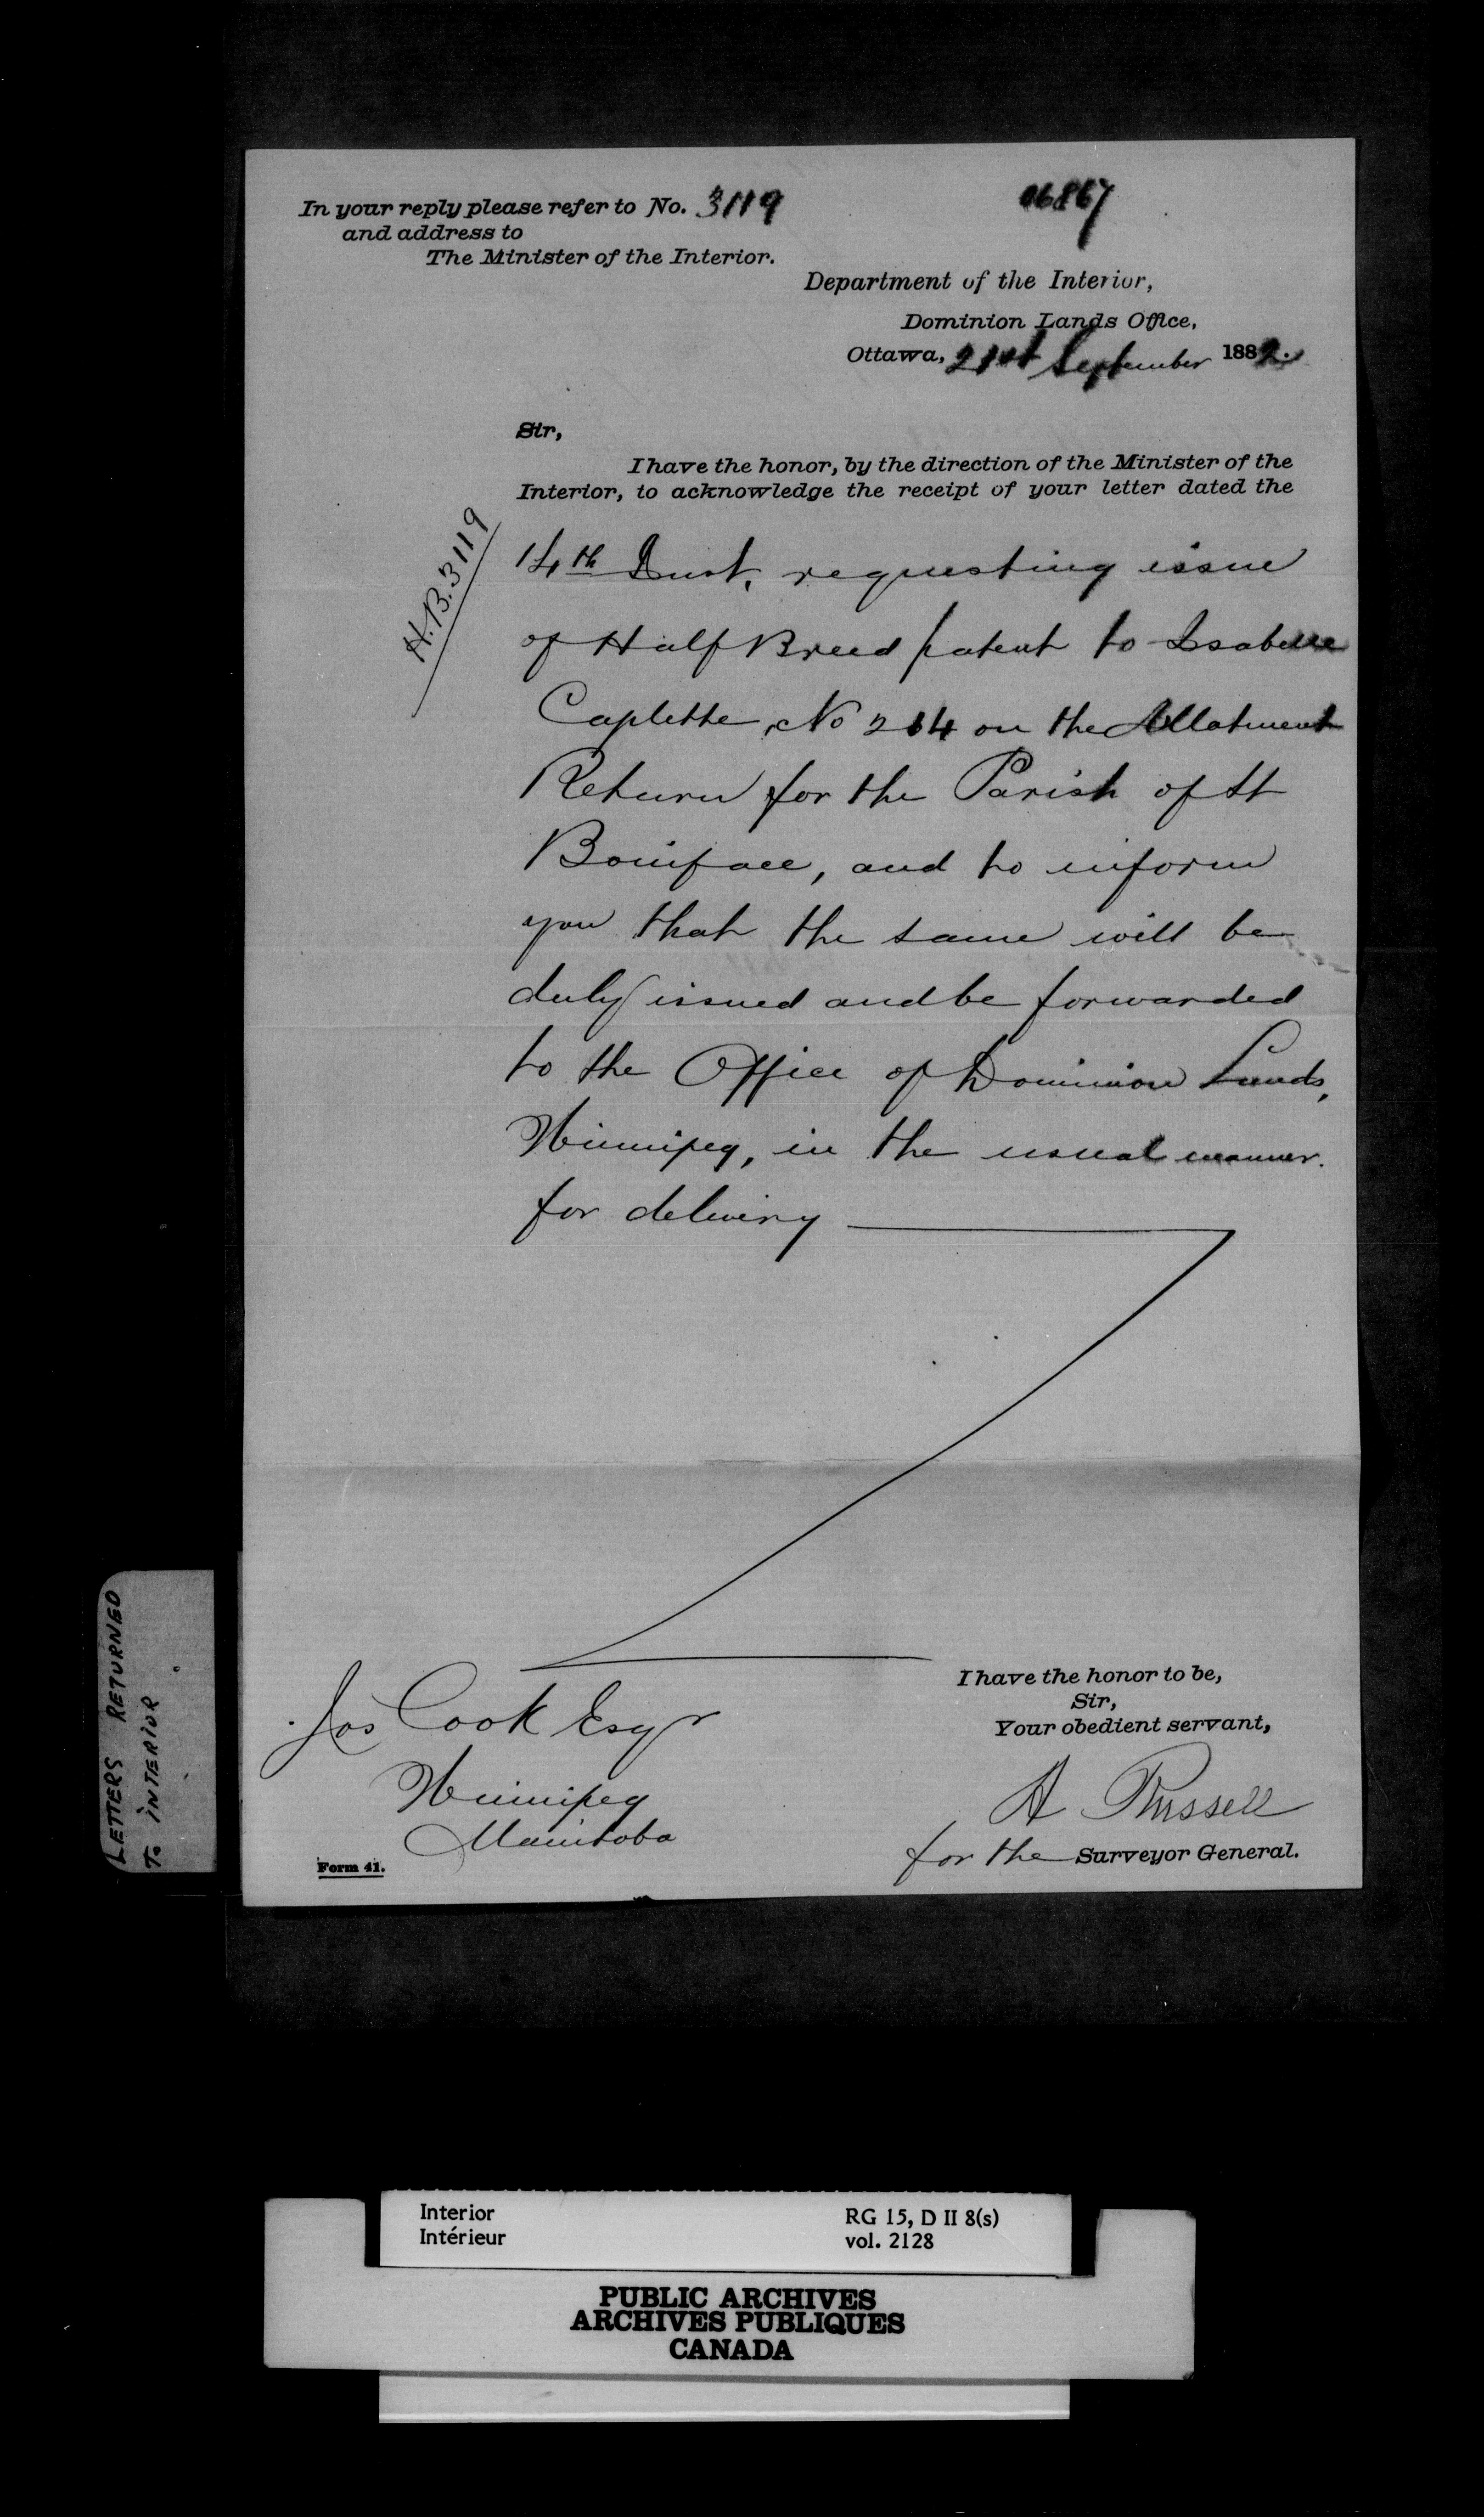 In your reply please refer to No. 3119
and address to
The Minister of the Interior.
Department of the Interior,
Dominion Lands Office,
Ottawa, 21st September 1882.
Sir,
I have the honor, by the direction of the Minister of the
Interior, to acknowledge the receipt of your letter dated the
H.B. 3119
14th Inst, requesting issue
of Half Breed patent to Isabelle
Caplette, No 264 on the Allotment
Return for the Parish of St
Boniface, and to inform
you that the same will be
duly issued and be forwarded
to the Office of Dominion Lands,
Winnipeg, in the usual manner.
for delivery
I have the honor to be,
Sir,
Your obedient servant,
A Russell
for the Surveyor General.
Jos Cook Esqr
Winnipeg
Manitoba
Form 41.
LETTERS RETURNED
To INTERIOR
Interior
Intérieur
RG 15, D II 8(s)
vol. 2128
PUBLIC ARCHIVES
ARCHIVES PUBLIQUES
CANADA